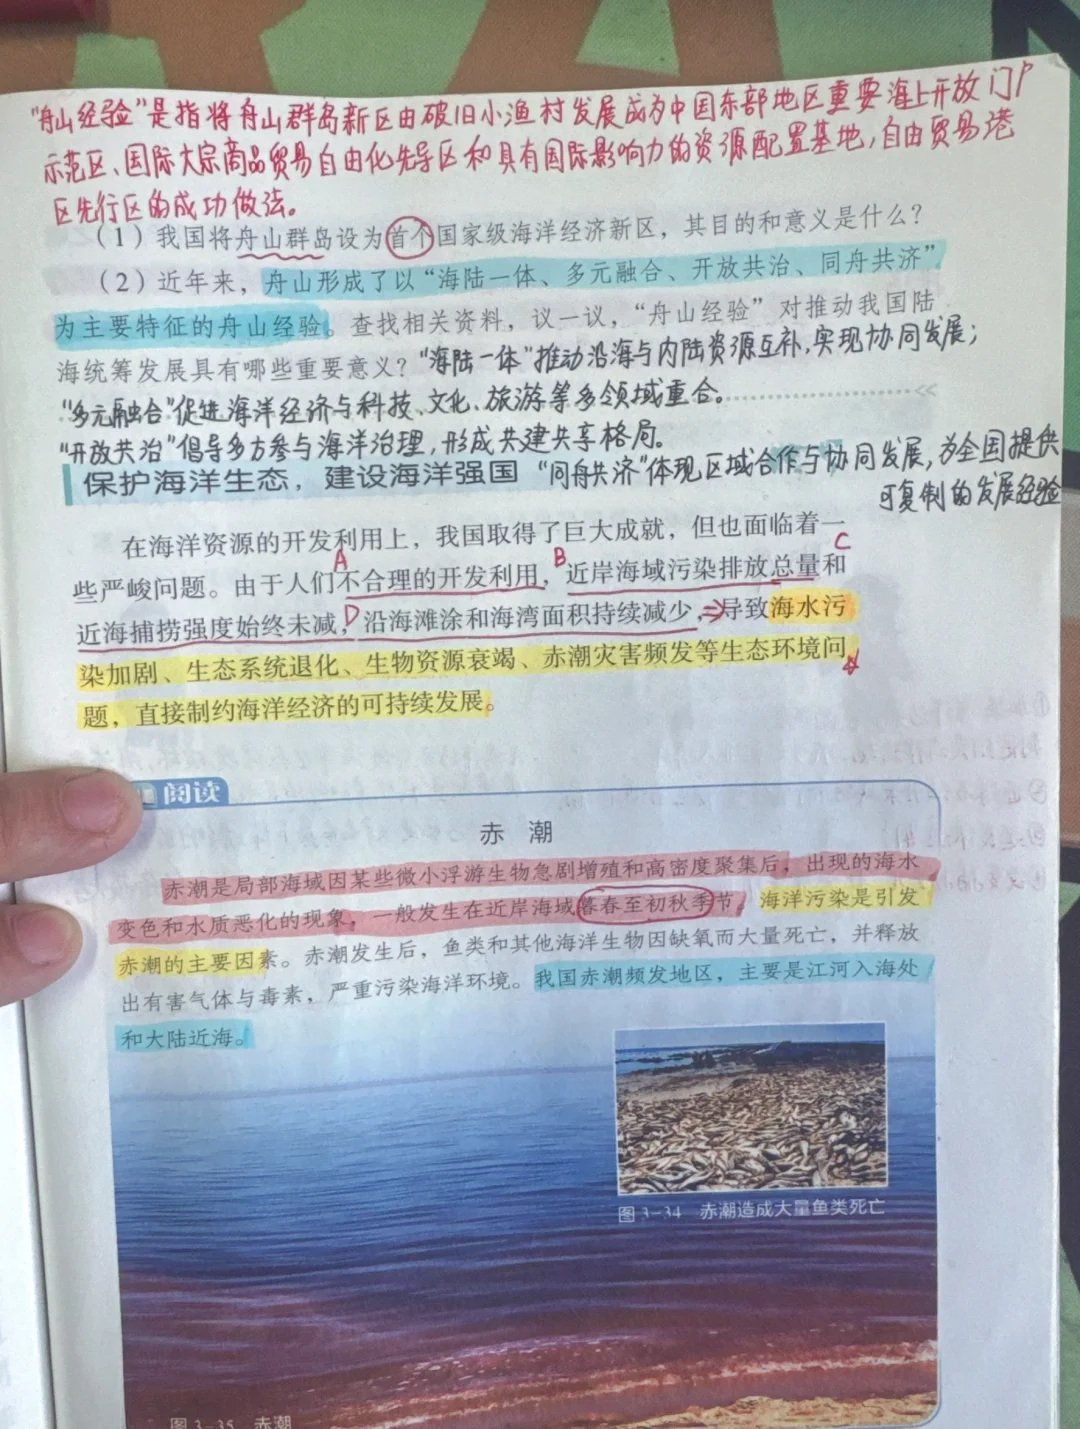 “舟山经验”是指将舟山群岛新区由破旧小渔村发展成为中国东部地区重要海上开放门户
示范区、国际大宗商品贸易自由化先导区和具有国际影响力的资源配置基地，自由贸易港
区先行区的成功做法。
（1）我国将舟山群岛设为首个国家级海洋经济新区，其目的和意义是什么？
（2）近年来，舟山形成了以“海陆一体、多元融合、开放共治、同舟共济”
为主要特征的舟山经验。查找相关资料，议一议，“舟山经验”对推动我国陆
海统筹发展具有哪些重要意义？“海陆一体”推动沿海与内陆资源互补，实现协同发展；
“多元融合”促进海洋经济与科技、文化、旅游等多领域重合。
“开放共治”倡导多方参与海洋治理，形成共建共享格局。
保护海洋生态，建设海洋强国 “同舟共济”体现区域合作与协同发展，为全国提供
可复制的发展经验
在海洋资源的开发利用上，我国取得了巨大成就，但也面临着一
A B C
些严峻问题。由于人们不合理的开发利用，近岸海域污染排放总量和
近海捕捞强度始终未减，D沿海滩涂和海湾面积持续减少，⇒导致海水污
染加剧、生态系统退化、生物资源衰竭、赤潮灾害频发等生态环境问
题，直接制约海洋经济的可持续发展。
阅读
赤 潮
赤潮是局部海域因某些微小浮游生物急剧增殖和高密度聚集后，出现的海水
变色和水质恶化的现象，一般发生在近岸海域暮春至初秋季节，海洋污染是引发
赤潮的主要因素。赤潮发生后，鱼类和其他海洋生物因缺氧而大量死亡，并释放
出有害气体与毒素，严重污染海洋环境。我国赤潮频发地区，主要是江河入海处
和大陆近海。
图 3-34 赤潮造成大量鱼类死亡
图 3-35 赤潮